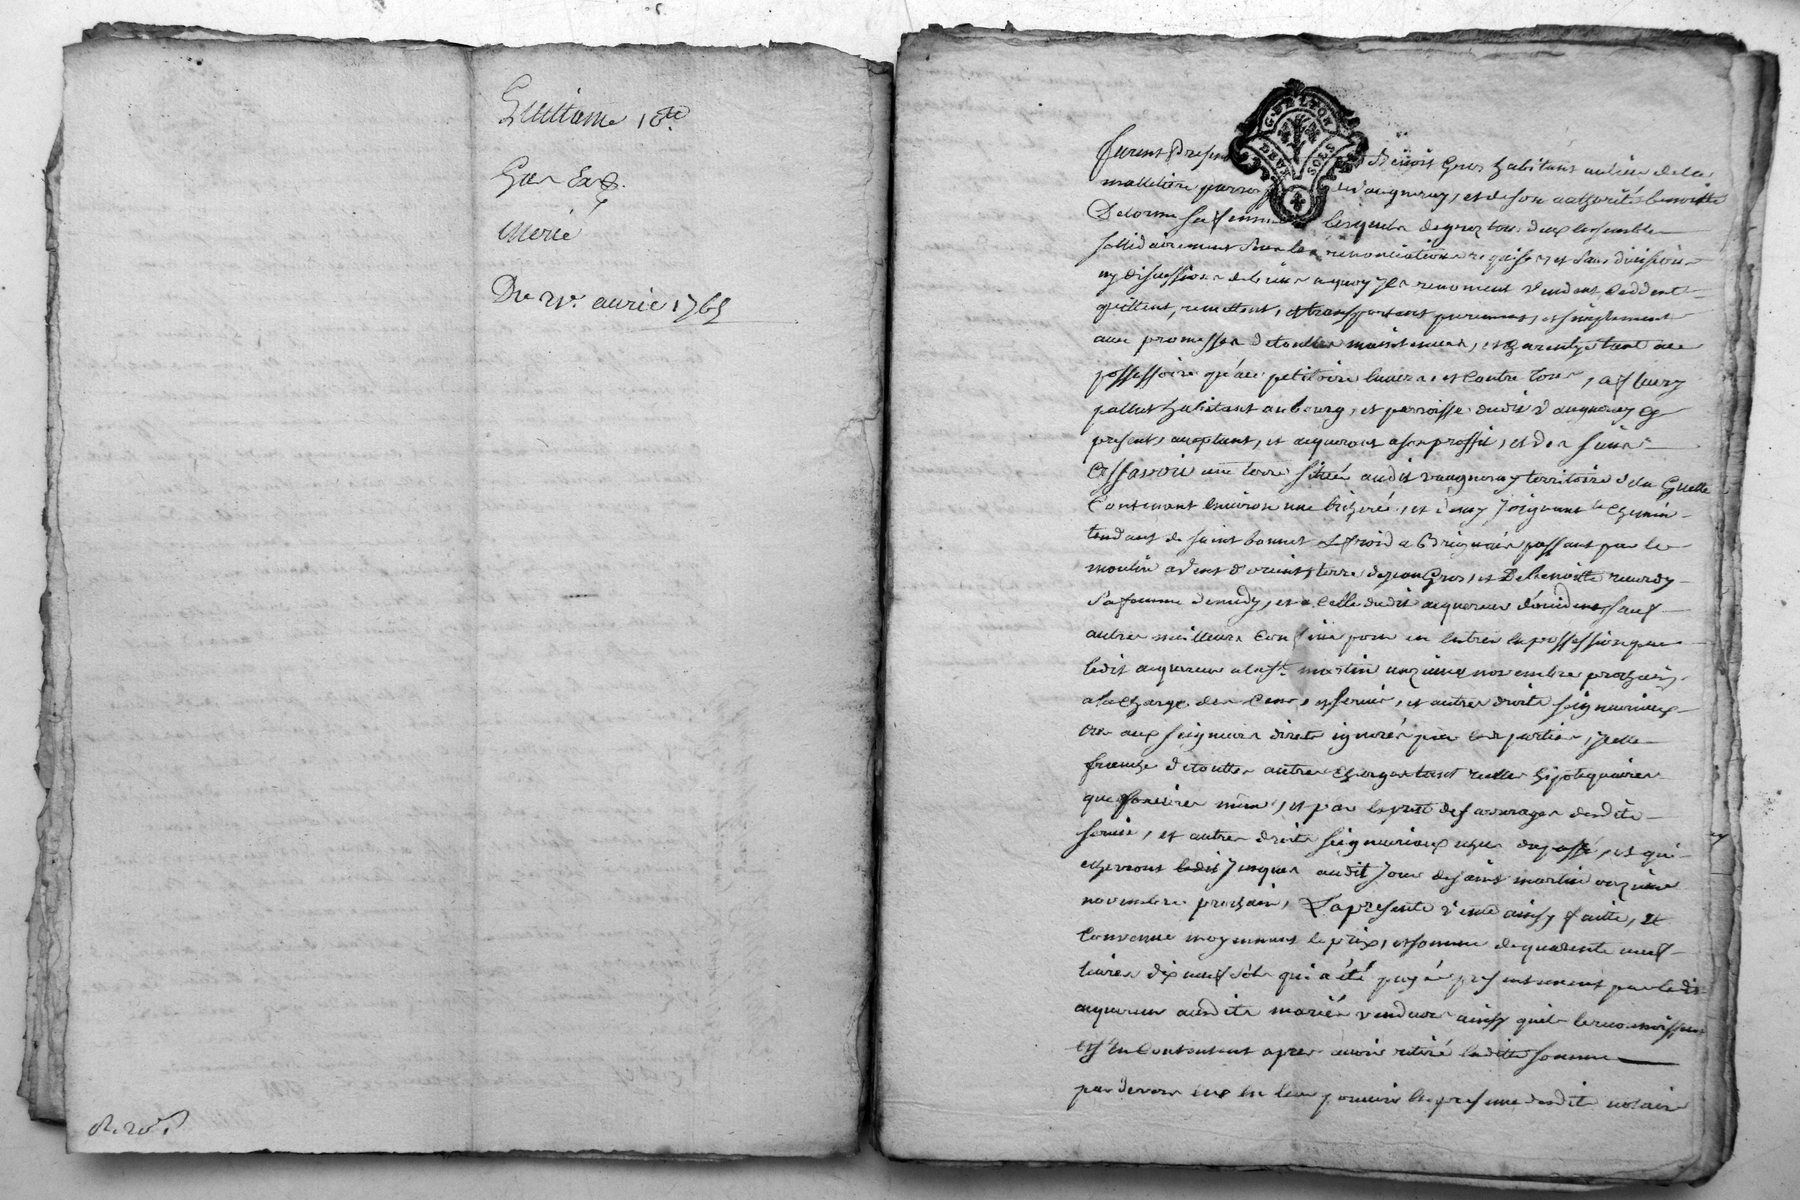 Quittance
Du 21e. avril 1765
GNLTE LYON
DEUX SOLS
Furent Presens Benoist Gros habitant au lieu de la
malletiere parroisse de vaugneray, et de son authorité benoitte
Delorme sa femme lesquels de grez tous deux ensemble
sollidairement sous les renonciations requises et sans division
ny discussion de biens a quoy ils renoncent vendent, ceddent
quittent, remettent, et transportent purement, et simplement
avec promesse de toutte maintenue, et garentye tant au
possessoire qu'au petitoire envers, et contre tous, a fleury
pallut habitant au bourg, et parroisse dudit vaugneray cy
present, acceptant, et acquerant a son proffit, et des siens
Assavoir une terre située audit vaugneray territoire de la Guelle
Contenant environ une bicheré, et demy Joignant le chemin
tendant de saint bonnet le froid a Brignais passant par le
moulin a vent d'orient, terre de jean Gros, et de benoitte
sa femme de midy, et a celle dudit acquereur d'occident sauf
autres meilleurs confins pour en entrer en possession par
ledit acquereur a la st. martin onzieme novembre prochain,
a la charge des cens, et servis, et autres droits seigneuriaux
dus aux seigneurs directs ignorés par les parties, icelle
franche de touttes autres charges tant reelles hipotequaires
que foncieres même, et par exprest des arrerages desdits
servis, et autres droits seigneuriaux echus du passé, et qui
echerront ledit jusques audit Jour de saint martin onzieme
novembre prochain, La presente vente ainsy faitte, et
convenue moyennant le prix, et somme de quarente neuf
livres dix neuf sols qui a été payé presentement par ledit
acquereur auxdits mariés vendeurs ainsy qu'ils le reconnoissent
et s'en contentent apres avoir retiré laditte somme
par devers eux en leur pouvoir en presence desdits notaire